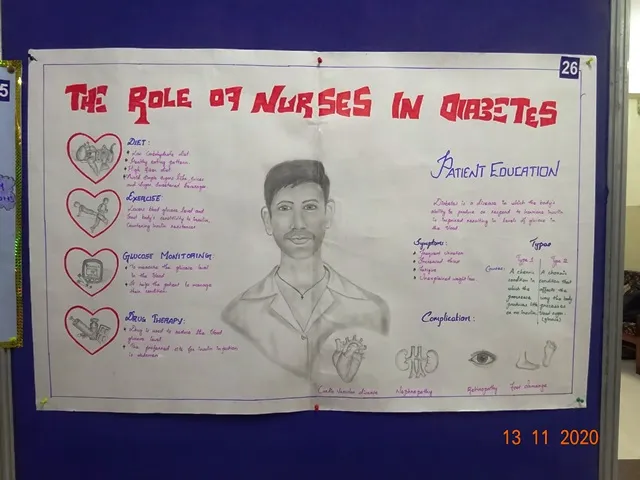 5
26
THE ROLE OF NURSES IN DIABETES
DIET:
Low Carbohydrate diet
Healthy eating pattern
High fiber diet
Avoid simple sugars like juices
and sugar sweetened beverages
EXERCISE:
Lowers blood glucose level and
boost body's sensitivity to insulin,
Countering insulin resistance
GLUCOSE MONITORING
To measure the glucose level
in the blood
It help the patient to manage
their condition.
DRUG THERAPY:
Drug is used to reduce the blood
glucose level
The preferred site for insulin injection
is abdomen
PATIENT EDUCATION
Diabetes is a disease in which the body's
ability to produce or respond to hormone insulin
is impaired resulting in levels of glucose in
the blood
Symptoms:
Frequent urination
Increased thirst
Fatigue
Unexplained weight loss
Types
Causes:
Type I
A chronic
condition in
which the
pancreas
produces little
or no insulin
Type II
A chronic
condition that
affects the
way the body
processes
blood sugar
(glucose)
Complication:
Cardio vascular disease
Nephropathy
Retinopathy
Foot damage
13 11 2020